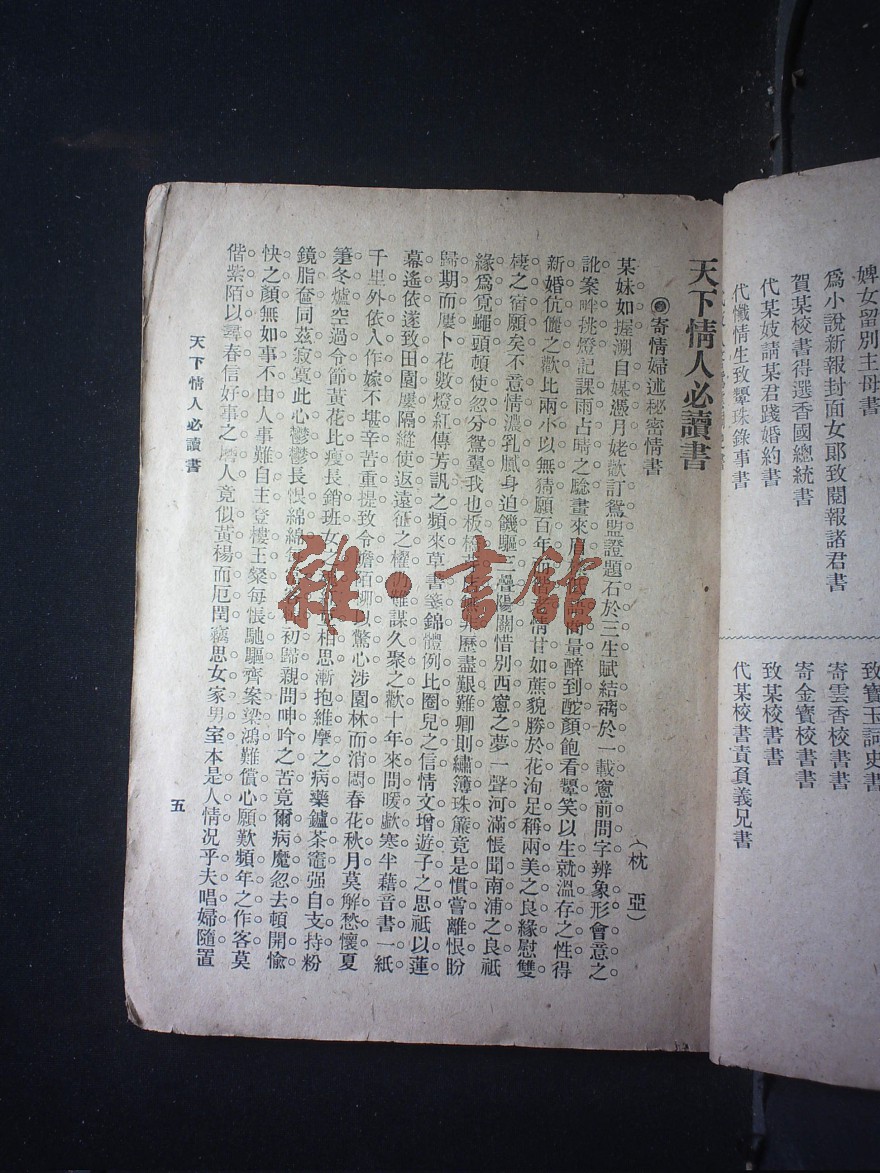 婢女留別主母書
爲小說新報封面女郞致閱報諸君書
賀某校書得選香國總統書
代某妓請某君踐婚約書
代懺情生致顰珠錄事書
致寶玉詞史書
寄雲香校書書
寄金寶校書書
致某校書書
代某校書責負義兄書
天下情人必讀書
寄情婦述秘密情書
（枕亞）
某妹如握溯自媒憑月姥歡訂鴛盟證題石於三生賦結褵於一載窻前問字辨象形會意之
訛案畔挑燈記課雨占晴之騐畫來眉商量醉到酡顏飽看顰笑以生就溫存之性得
新婚伉儷之歡比兩小以無猜願百年而偕老情甘如蔗貌勝於花洵足稱兩美之良緣慰雙
棲之宿願矣不意情濃乳膩身迫饑驅三疊陽關惜別西窻之夢一聲河滿悵聞南浦之良祗
緣爲覓蠅頭頓使忽分鴛翼我也板橋歷盡艱難卿則繡簿珠簾竟是慣嘗離恨盼
歸期而屢卜花數燈紅傳芳訊之頻來草書箋錦體例比圈兒之信情文增遊子之思祗以蓮
幕遙依遂致田園屢隔縱使返遠征之櫂難謀久聚之歡十年來問暖歔寒半藉音書一紙
千里外依入作嫁不堪辛苦重提致令瞻陌柳以驚心涉園林而消悶春花秋月莫解愁懷夏
簟冬爐空過令節黃花比瘦長銷班女之相思漸抱維摩之病藥鑪茶竈强自支持粉
鏡脂奩同茲寂寞此心鬱鬱長悞綿綿初歸親問呻吟之苦竟爾病魔忽去頓開愉
快之顏無如事不由人事難自主登樓王粲每悵馳驅齊案梁鴻難償心願歎頻年之作客莫
偕紫陌以尋春信好事之磨人竟似黃楊而厄閏竊思女家男室本是人情况乎夫唱婦隨置
天下情人必讀書
五
雜·書館